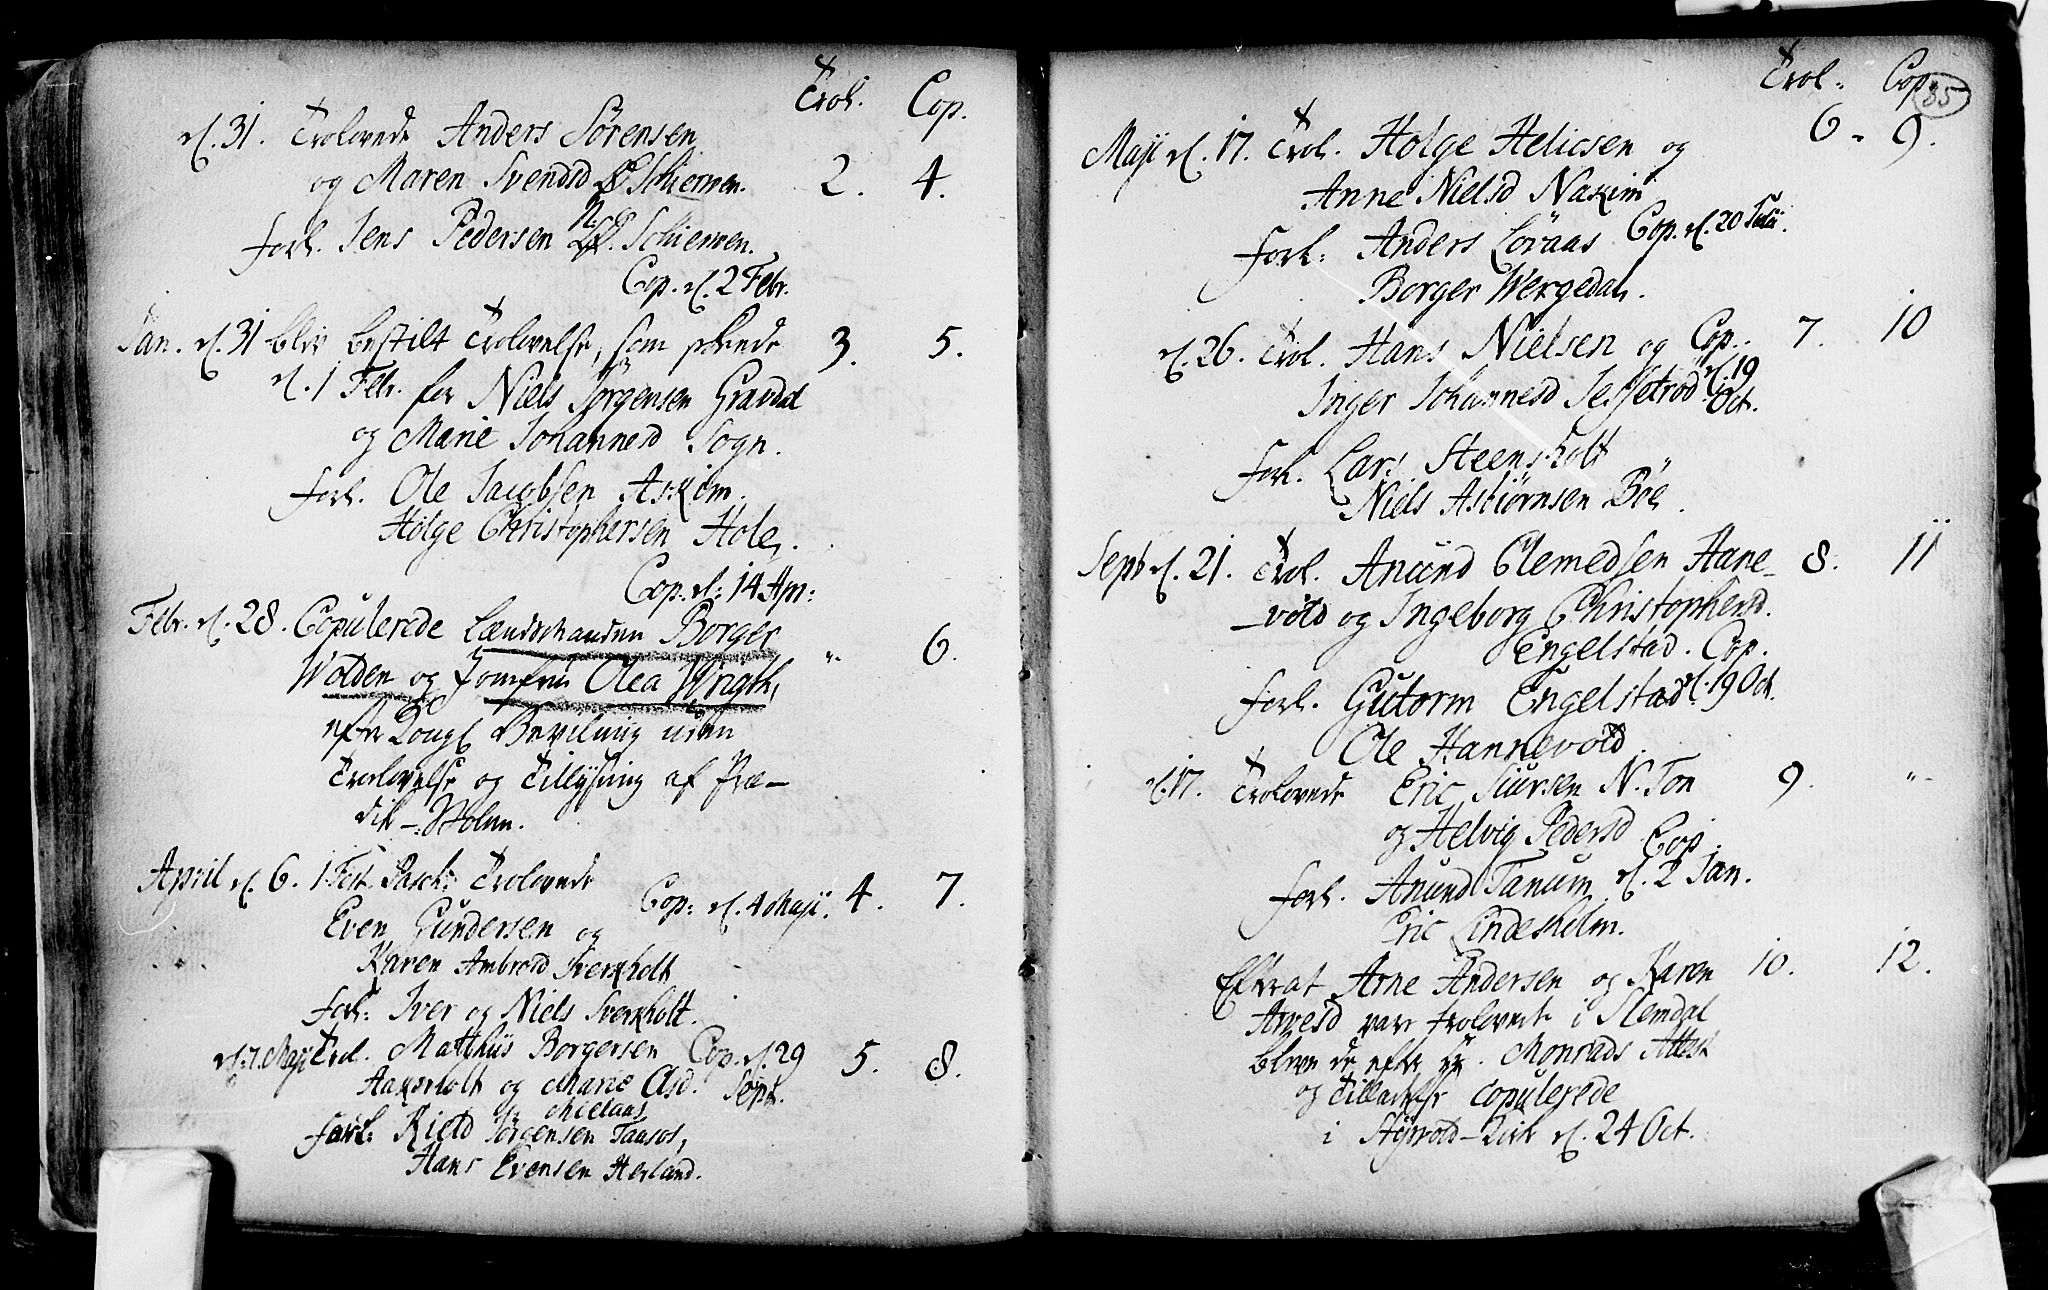 Trol. Cop.
d. 31. Trolovede Anders Sörensen
og Maren Svendsd Schierven. 2. 4.
forl. Jens Pedersen N. Schierven.
Cop. d. 2 Febr.
Jan. d. 31 blev bestilt Trolovelse, som skeede 3. 5.
d. 1 Febr. for Niels Jörgensen Gravdal
og Marie Johannesd Sogn.
forl. Ole Jacobsen Askim.
Holge Christophersen Hole.
Cop. d. 14 Apr:
Febr. d. 28. Copulerede Lændsmanden Borger
Wolden og Jomfru Olea Wrigth, „ 6.
efter Kongl Bevilning uden
Trolovelse og Tillysning af Præ-
dik-Stolen.
April d. 6. 1. Fest. Pasch: Trolovede
Even Gundersen og Cop: d. 4 Maji. 4. 7.
Karen Ambrosd Sverkholt
forl: Iver og Niels Sverkholt.
d. 7. Maji Trol. Matthiis Borgersen Cop. d. 29 5. 8.
Aakerholt og Marie Olsd. Sept.
Mielaas
forl: Jörgensen Taasos,
Hans Evensen Herland.
Trol. Cop. 85
Maji d. 17. Trol. Holge Helicsen og 6 „ 9.
Anne Nielsd Naskim
forl: Anders Löraas Cop. d. 20
Borger Wergedal.
d. 26. Trol. Hans Nielsen og Cop. 7. 10
Inger Johannesd d. 19
Oct.
forl. Lars Steensholt
Niels Asbiörnsen Böe.
Sept d. 21. Trol. Anund Clemedsen Hane- 8. 11
-vold og Ingeborg Christophersd.
Engelstad. Cop.
forl. Gutorm Engelstad d. 19 Oct.
Ole Hannevold
d. 17. Trolovede Eric Siursen N. Ton 9. „
og Helvig Pedersd Cop.
forl. Anund Tanum d. 2 Jan.
Eric Lindesholm.
Efterat Arne Andersen og Karen 10. 12.
Arvesd vare trolovede i Slemdal
bleve de efter Hr. Monrads Attest
og Tilladelse copulerede
i Styrvold-Kirk d. 24 Oct.